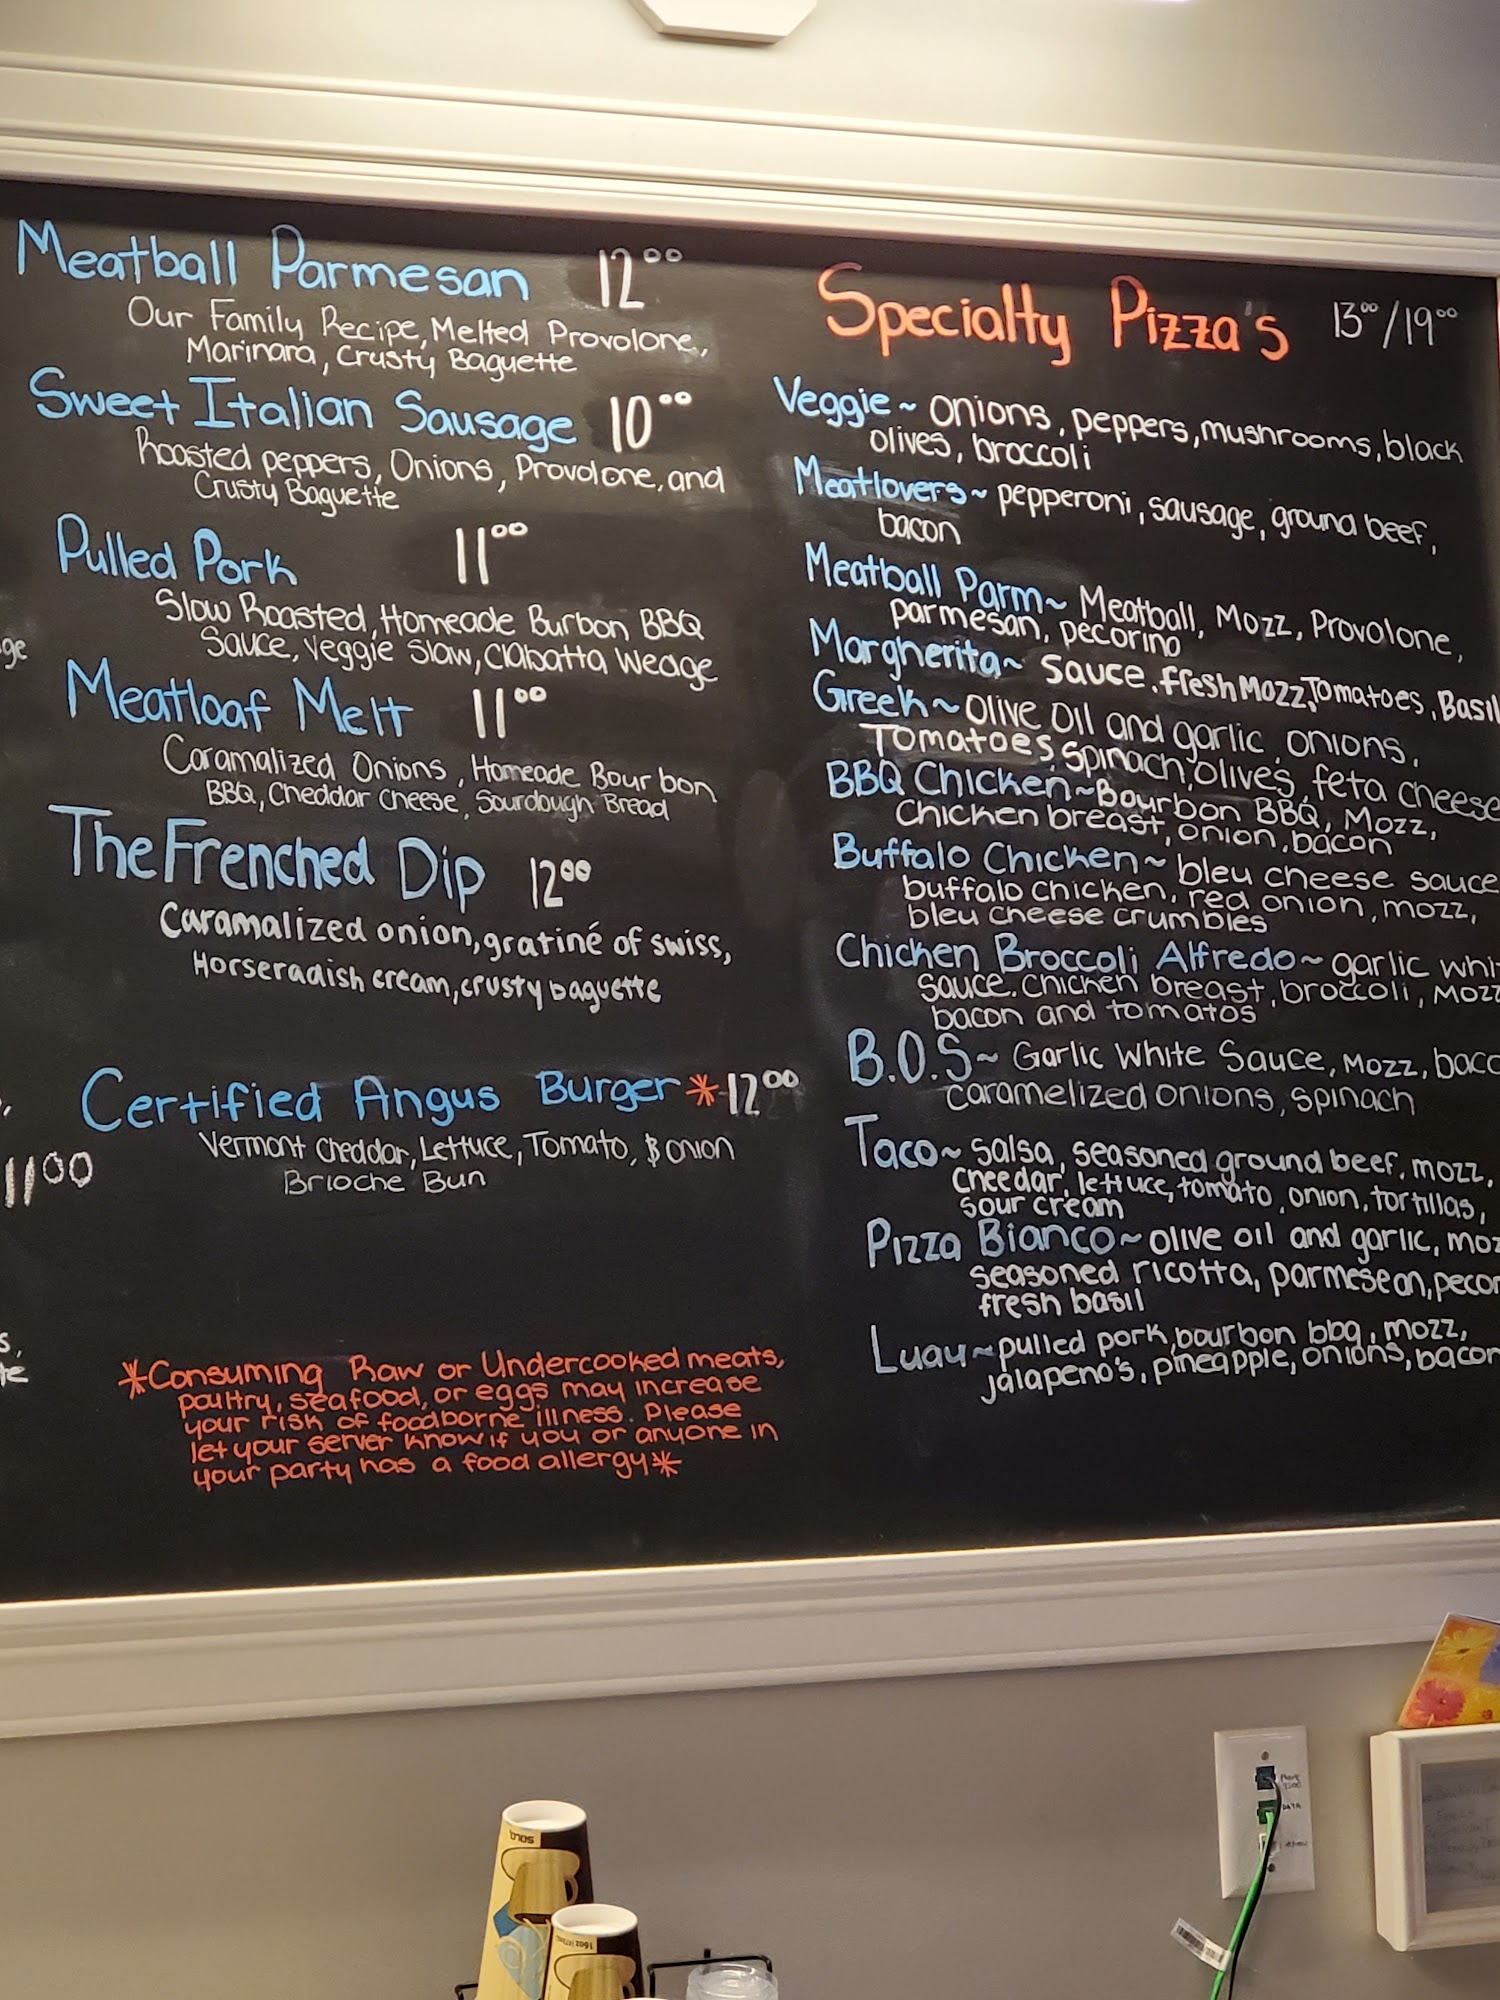 Meatball Parmesan 12⁰⁰
Our Family Recipe, Melted Provolone,
Marinara, Crusty Baguette
Sweet Italian Sausage 10⁰⁰
Roasted peppers, Onions, Provolone, and
Crusty Baguette
Pulled Pork 11⁰⁰
Slow Roasted, Homeade Burbon BBQ
Sauce, Veggie Slaw, Ciabatta Wedge
Meatloaf Melt 11⁰⁰
Caramalized Onions, Homeade Bourbon
BBQ, Cheddar Cheese, Sourdough Bread
The Frenched Dip 12⁰⁰
Caramalized onion, gratiné of swiss,
Horseradish cream, crusty baguette
Certified Angus Burger * 12⁰⁰
Vermont Cheddar, Lettuce, Tomato, & onion
Brioche Bun
11⁰⁰
*Consuming Raw or Undercooked meats,
poultry, seafood, or eggs may increase
your risk of foodborne illness. Please
let your server know if you or anyone in
your party has a food allergy*
Specialty Pizza's 13⁰⁰/19⁰⁰
Veggie~ onions, peppers, mushrooms, black
olives, broccoli
Meatlovers~ pepperoni, sausage, ground beef,
bacon
Meatball Parm~ Meatball, Mozz, Provolone,
parmesan, pecorino
Margherita~ Sauce, fresh Mozz, Tomatoes, Basil
Greek~ olive oil and garlic, onions,
Tomatoes, Spinach, olives, feta cheese
BBQ Chicken~ Bourbon BBQ, Mozz,
Chicken breast, onion, bacon
Buffalo Chicken~ bleu cheese sauce
buffalo chicken, red onion, mozz,
bleu cheese crumbles
Chicken Broccoli Alfredo~ garlic whi
sauce, chicken breast, broccoli, mozz
bacon and tomatos
B.O.S~ Garlic White Sauce, Mozz, baco
caramelized onions, spinach
Taco~ salsa, seasoned ground beef, mozz,
cheedar, lettuce, tomato, onion, tortillas,
sour cream
Pizza Bianco~ olive oil and garlic, moz
seasoned ricotta, parmesean, pecor
fresh basil
Luau~ pulled pork, bourbon bbq, mozz,
jalapeno's, pineapple, onions, bacon
SOLO
16oz
DATA